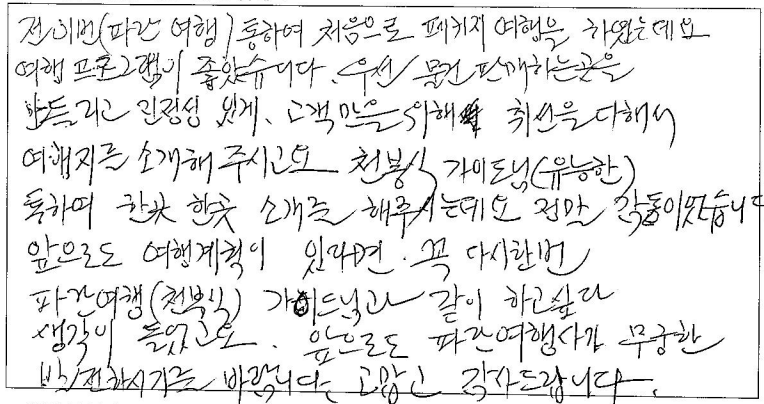 전 이번(파란 여행)통하여 처음으로 페키지 여행을 하였는데요
여행 프로그램이 좋았습니다. 우선 물건 판매하는곳을
안들리고 진정성 있게, 고객 만을 위해 취선을 다해서
여행지를 소개해 주시고요 천봉식 가이드님(유능한)
통하여 한곳 한곳 소개를 해주시는데요 정말 감동이었습니다
앞으로도 여행계획이 있다면. 꼭 다시한번
파란여행(천봉식) 가이드님과 같이 하고싶다
생각이 들었고요. 앞으로도 파란여행사가 무궁한
발전하시기를 바랍니다. 고맙고 감사드립니다.